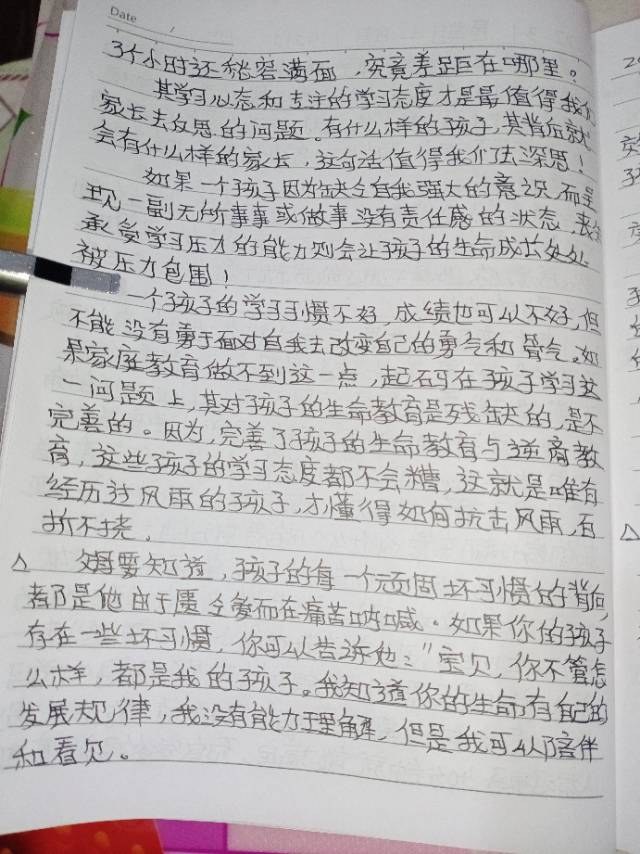 Date
3个小时还愁容满面,究竟差距在哪里。
其学习心态和专注的学习态度才是最值得我们
家长去反思的问题。有什么样的孩子,其背后就
会有什么样的家长,这句话值得我们去深思!
如果一个孩子因为缺乏自我强大的意识,而呈
现一副无所事事或做事没有责任感的状态,丧失
承受学习压力的能力则会让孩子的生命成长处处
被压力包围!
一个孩子的学习习惯不好,成绩也可以不好,但
不能没有勇于面对自我去改变自己的勇气和骨气。如
果家庭教育做不到这一点,起码在孩子学习这
一问题上,其对孩子的生命教育是残缺的,是不
完善的。因为,完善了孩子的生命教育与逆商教
育,这些孩子的学习态度都不会糟,这就是唯有
经历过风雨的孩子,才懂得如何抗击风雨,百
折不挠,
△ 父母要知道,孩子的每一个顽固坏习惯的背后,
都是他由于匮乏爱而在痛苦呐喊.如果你的孩子
存在一些坏习惯,你可以告诉他:"宝贝,你不管怎
么样,都是我的孩子。我知道你的生命,有自己的
发展规律,我没有能力理解,但是我可以陪伴
和看见。